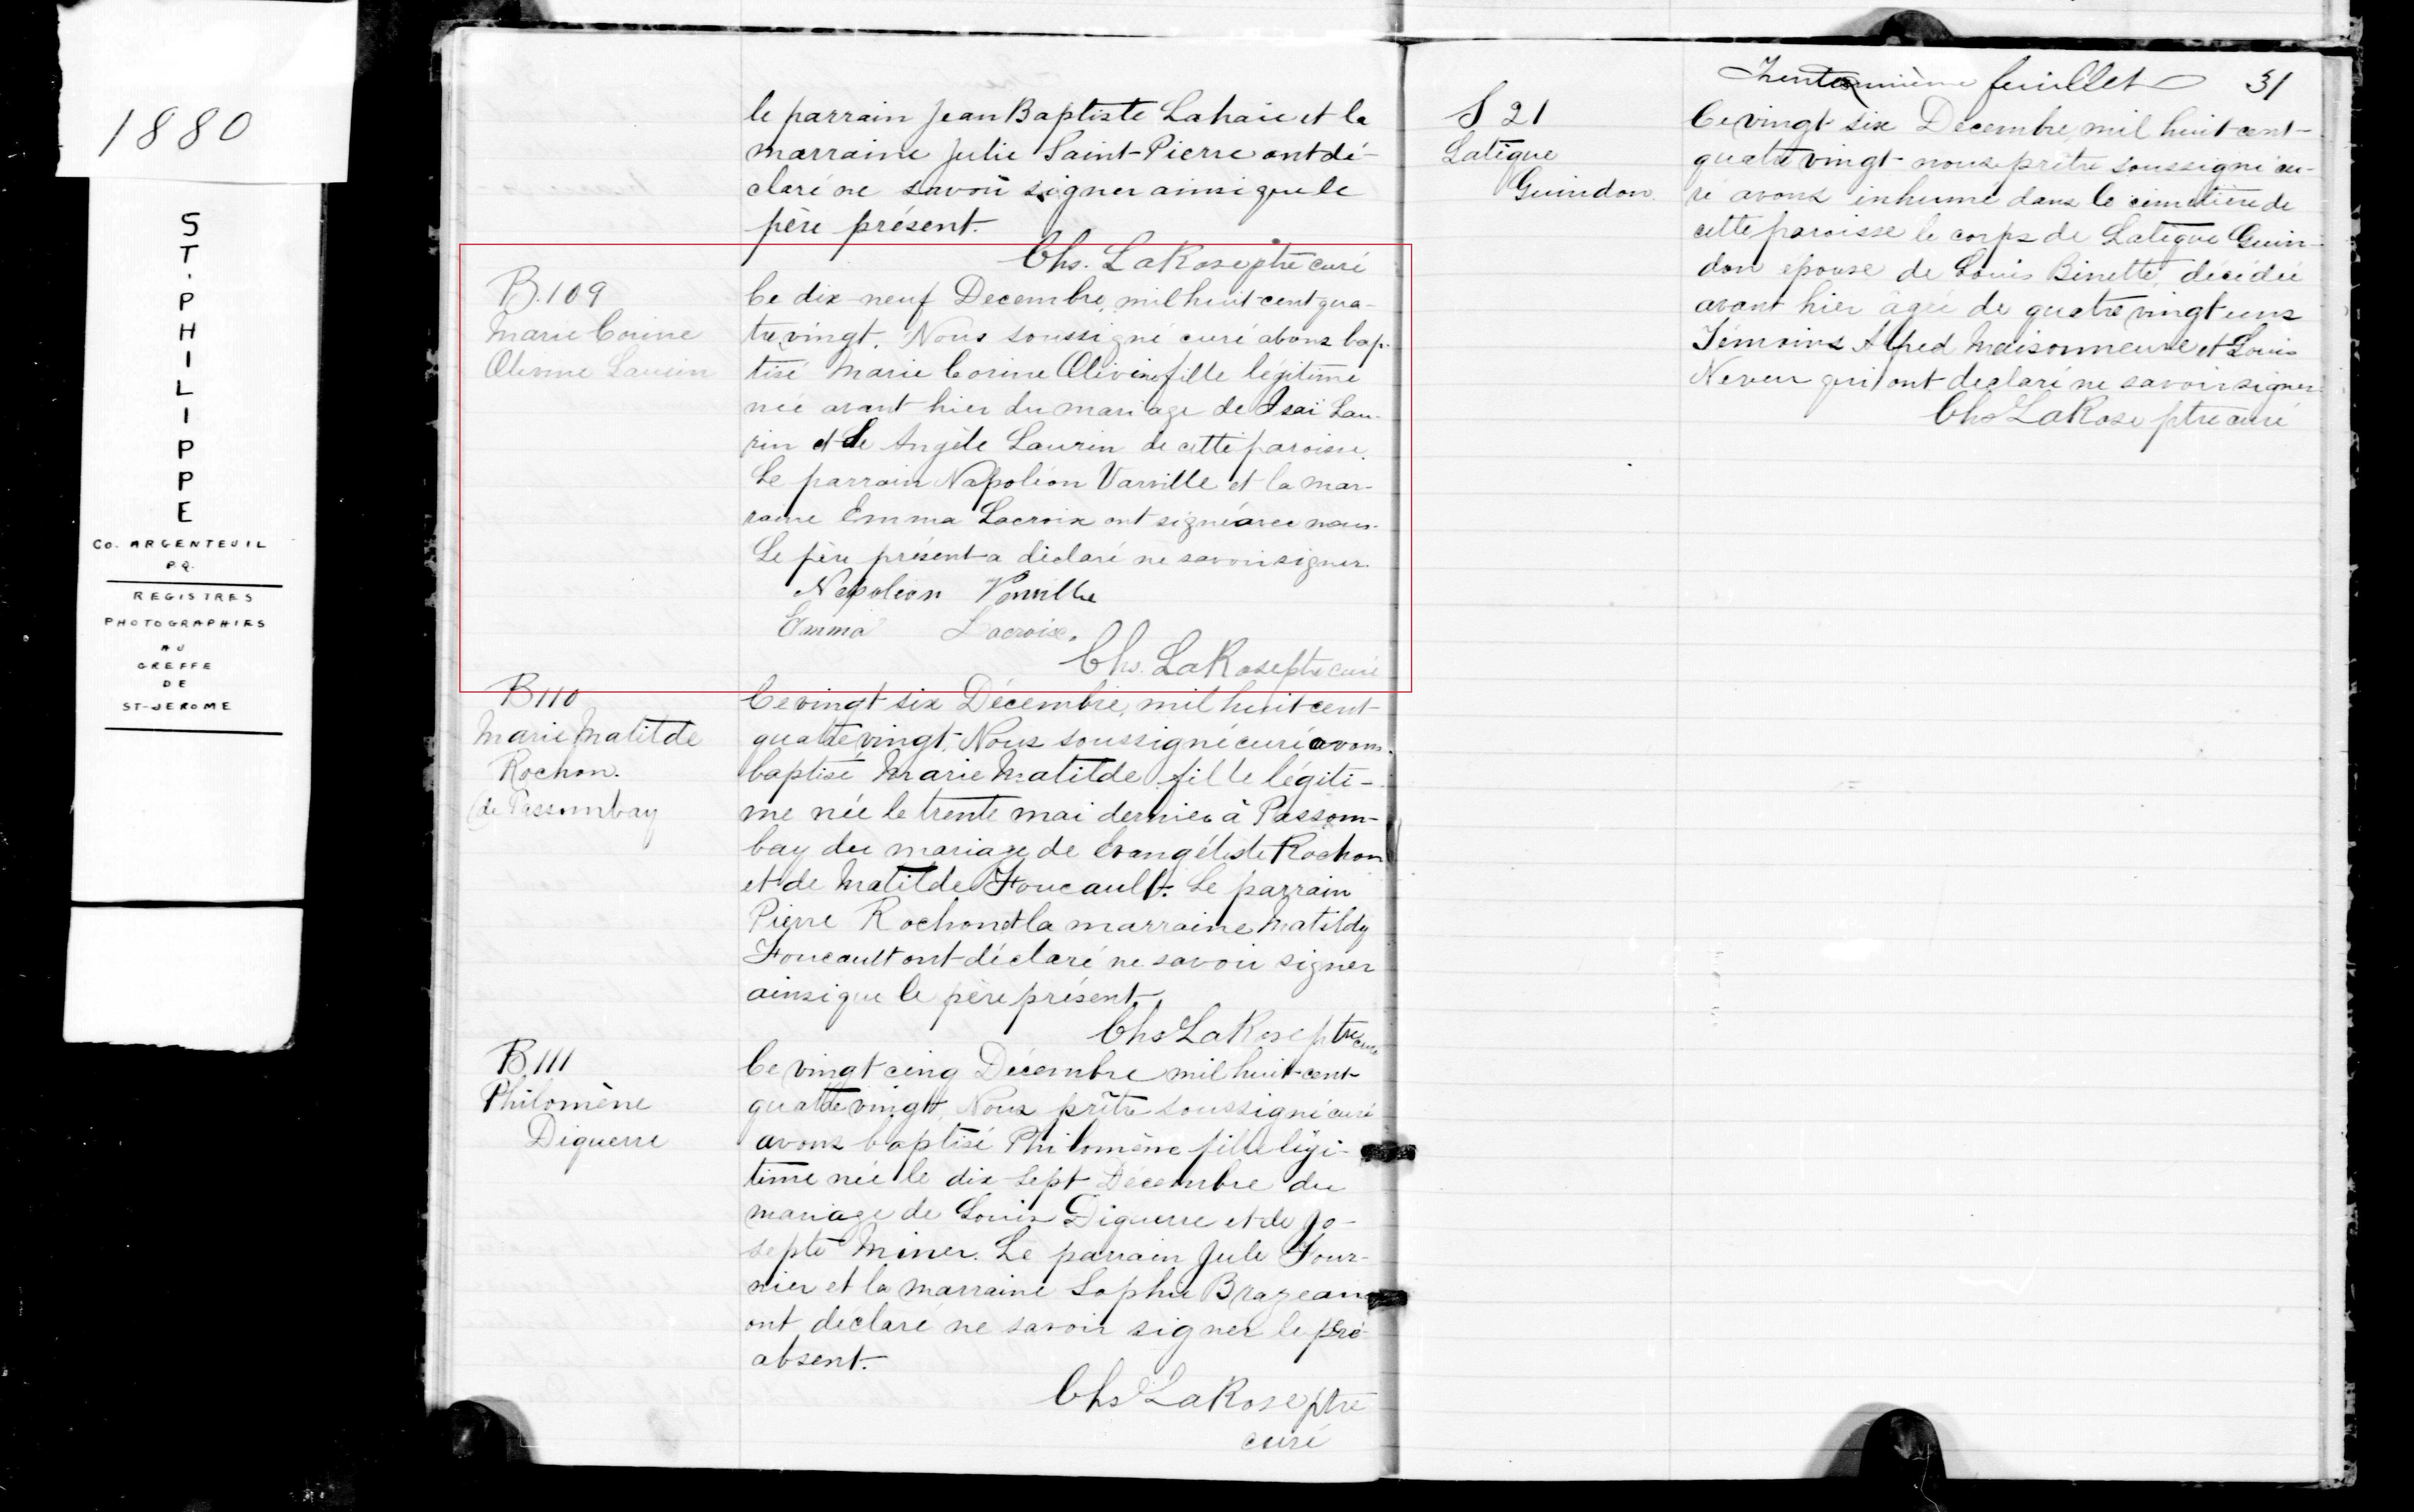 1880
ST. PHILIPPE
Co. ARGENTEUIL
P.Q.
REGISTRES
PHOTOGRAPHIES
AU
GREFFE
DE
ST-JEROME
le parrain Jean Baptiste Lahaie et la
marraine Julie Saint-Pierre ont dé-
claré ne savoir signer ainsi que le
père présent.
Chs. LaRose ptre curé
B.109
Marie Corine
Olivine Laurin
Ce dix-neuf Decembre, mil huit-cent qua-
tre vingt. Nous soussigné curé avons bap-
tisé Marie Corine Olivine fille légitime
née avant hier du mariage de Isaï Lau-
rin et de Angèle Laurin de cette paroisse.
Le parrain Napoléon Varville et la mar-
raine Emma Lacroix ont signé avec nous.
Le père présent a déclaré ne savoir signer.
Napoleon
Emma Lacroix.
Chs. LaRose ptre curé
B110
Marie Matilde
Rochon.
(de Passombay
Ce vingt six Décembre, mil huit cent
quatre vingt. Nous soussigné curé avons
baptisé Marie Matilde fille légiti-
me née le trente mai dernier à Passom-
bay du mariage de Evangéliste Rochon
et de Matilde Foucault. Le parrain
Pierre Rochon et la marraine Matildy
Foucault ont déclaré ne savoir signer
ainsi que le père présent.
Chs LaRose ptre curé
B.111
Philomène
Diguerre
Ce vingt cinq Décembre mil huit-cent
quatre vingt, Nous prêtre soussigné curé
avons baptisé Philomène fille légi-
time née le dix-sept Décembre du
mariage de Louis Diguerre et de Jo-
septe Miner. Le parrain Jule Four-
nier et la marraine Sophie Brazeau
ont déclaré ne savoir signer le père
absent.
Chs LaRose ptre
curé
feuillet 31
S 21
Latègue
Guindon.
Ce vingt six Decembre, mil huit cent-
quatre vingt nous prêtre soussigné cu-
ré avons inhumé dans le cimetière de
cette paroisse le corps de Latègue Guin-
don epouse de Louis Binette, décédée
avant hier âgée de quatre vingt uns
Témoins Alfred Maisonneuve et Louis
Neveu qui ont declaré ne savoir signer.
Chs LaRose ptre curé